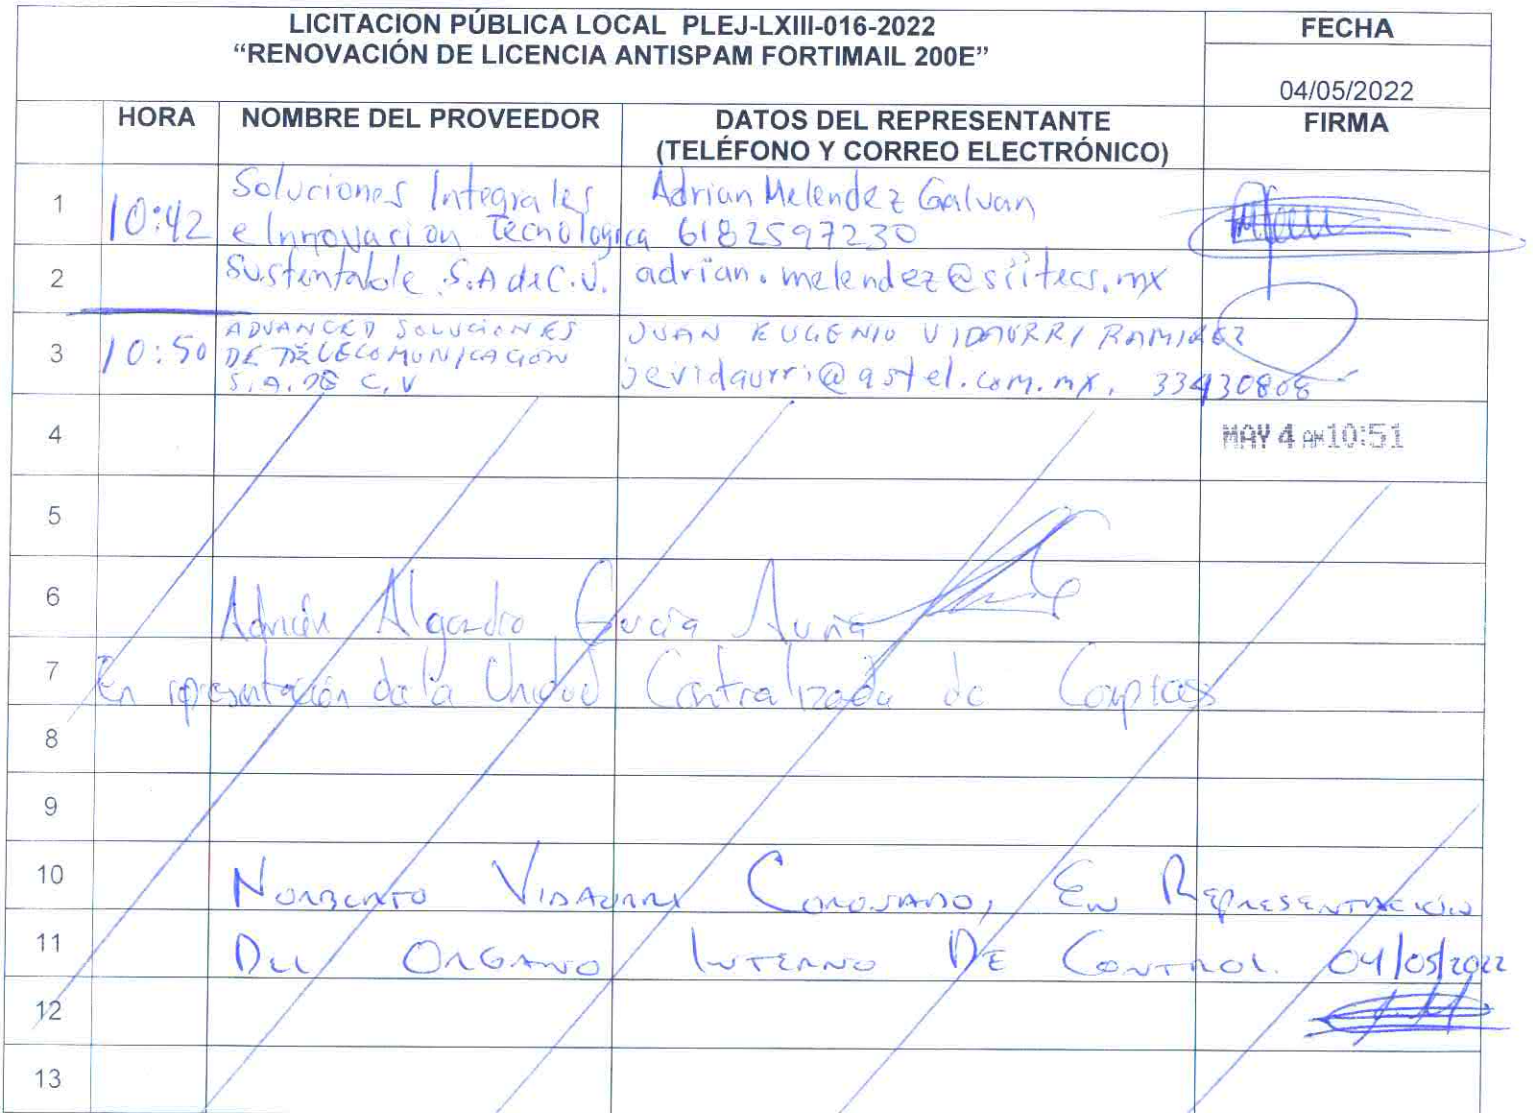 LICITACION PÚBLICA LOCAL PLEJ-LXIII-016-2022
“RENOVACIÓN DE LICENCIA ANTISPAM FORTIMAIL 200E”
FECHA
04/05/2022
HORA NOMBRE DEL PROVEEDOR DATOS DEL REPRESENTANTE FIRMA
(TELÉFONO Y CORREO ELECTRÓNICO)
1 10:42 Soluciones Integrales Adrian Melendez Galvan
e Innovacion Tecnologica 6182597230
2 Sustentable S.A de C.V. adrian.melendez@siitecs.mx
3 10:50 ADVANCED SOLUCIONES JUAN EUGENIO VIDAURRI RAMIREZ
DE TELECOMUNICACION
S.A. DE C.V jevidaurri@astel.com.mx, 33430808
4 MAY 4 AM 10:51
5
6 Adrián Alejandro García
7 En representación de la Unidad Centralizada de Compras
8
9
10 NORBERTO VIDAURRI CORONADO, EN REPRESENTACION
11 DEL ORGANO INTERNO DE CONTROL. 04/05/2022
12
13